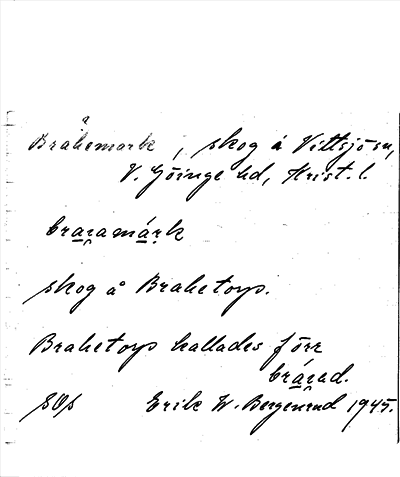 Bråhemark, skog å Vittsjö sn,
V. Göinge hd, Krist. l.
skog å Brahetorp.
Brahetorp kallades förr
Erik W. Bergenrud 1945.